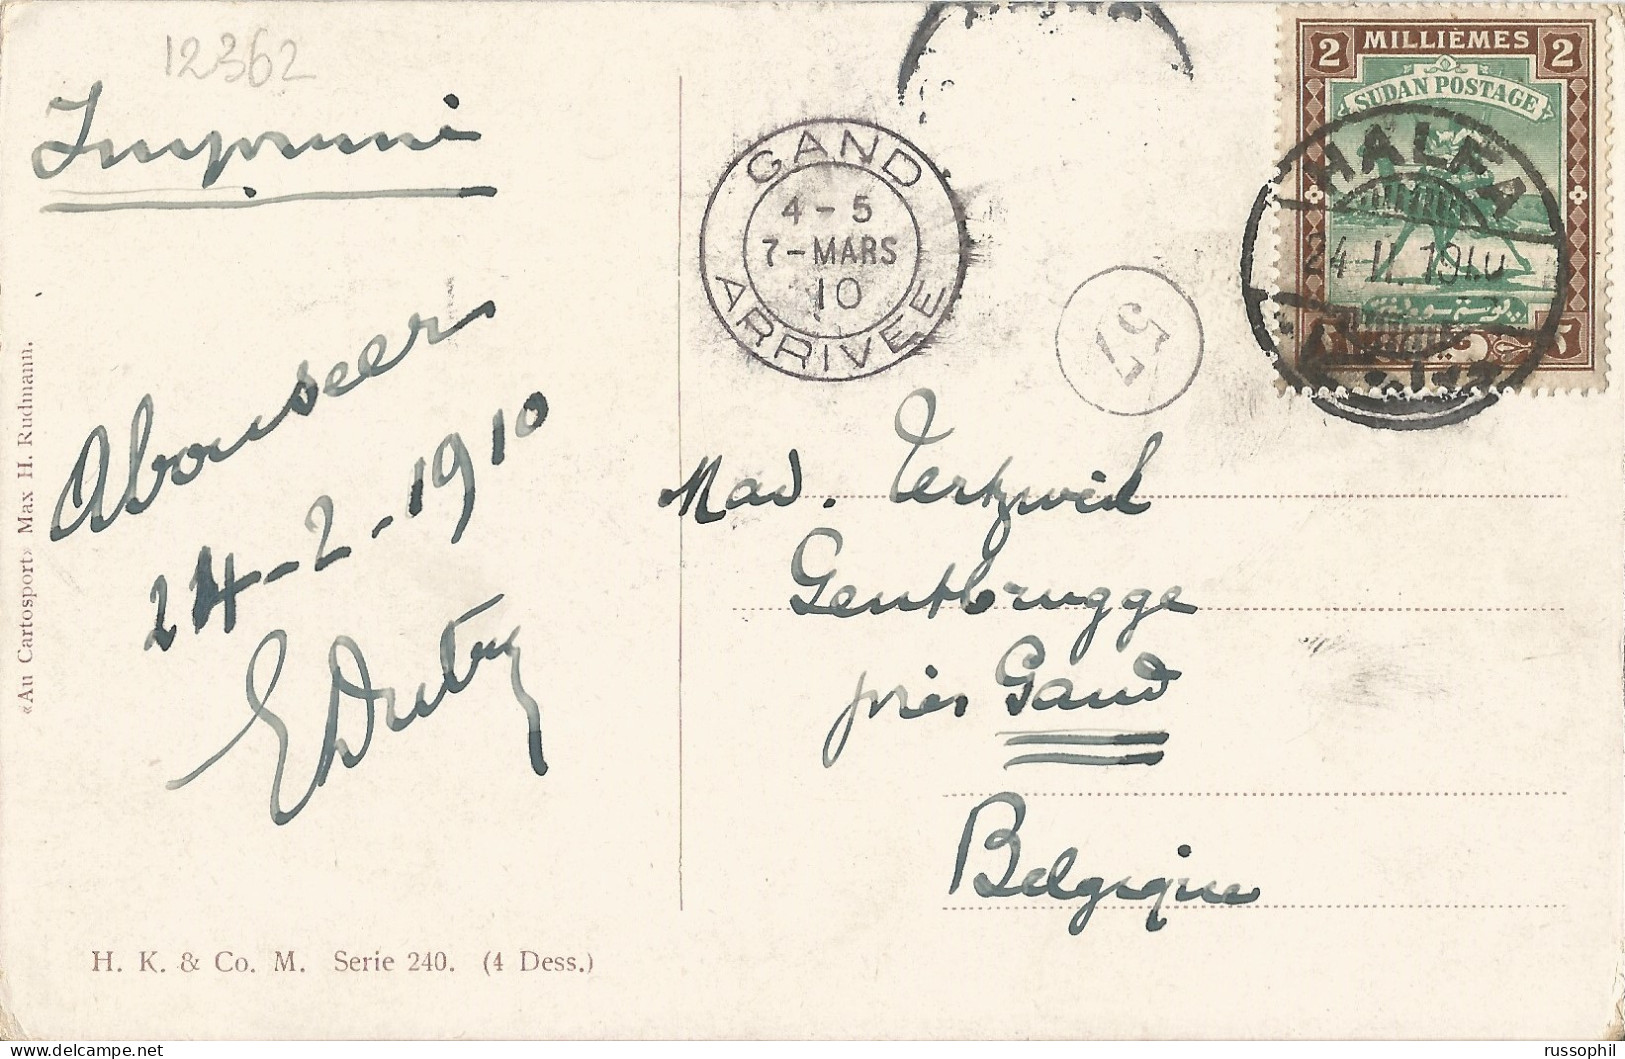 12362
Imprimé
Abouseer
24-2-1910
«Au Cartosport» Max H. Rudmann.
H. K. & Co. M. Serie 240. (4 Dess.)
GAND
4-5
7-MARS
10
ARRIVEE
57
2 MILLIÈMES 2
SUDAN POSTAGE
HALFA
24.II.1910
Mad.
Gentbrugge
près Gand
Belgique
russophil